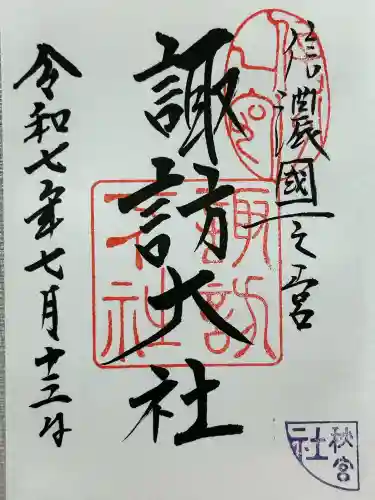 信濃國一之宮
諏訪大社
令和七年七月十三日
諏訪大社
秋宮
社